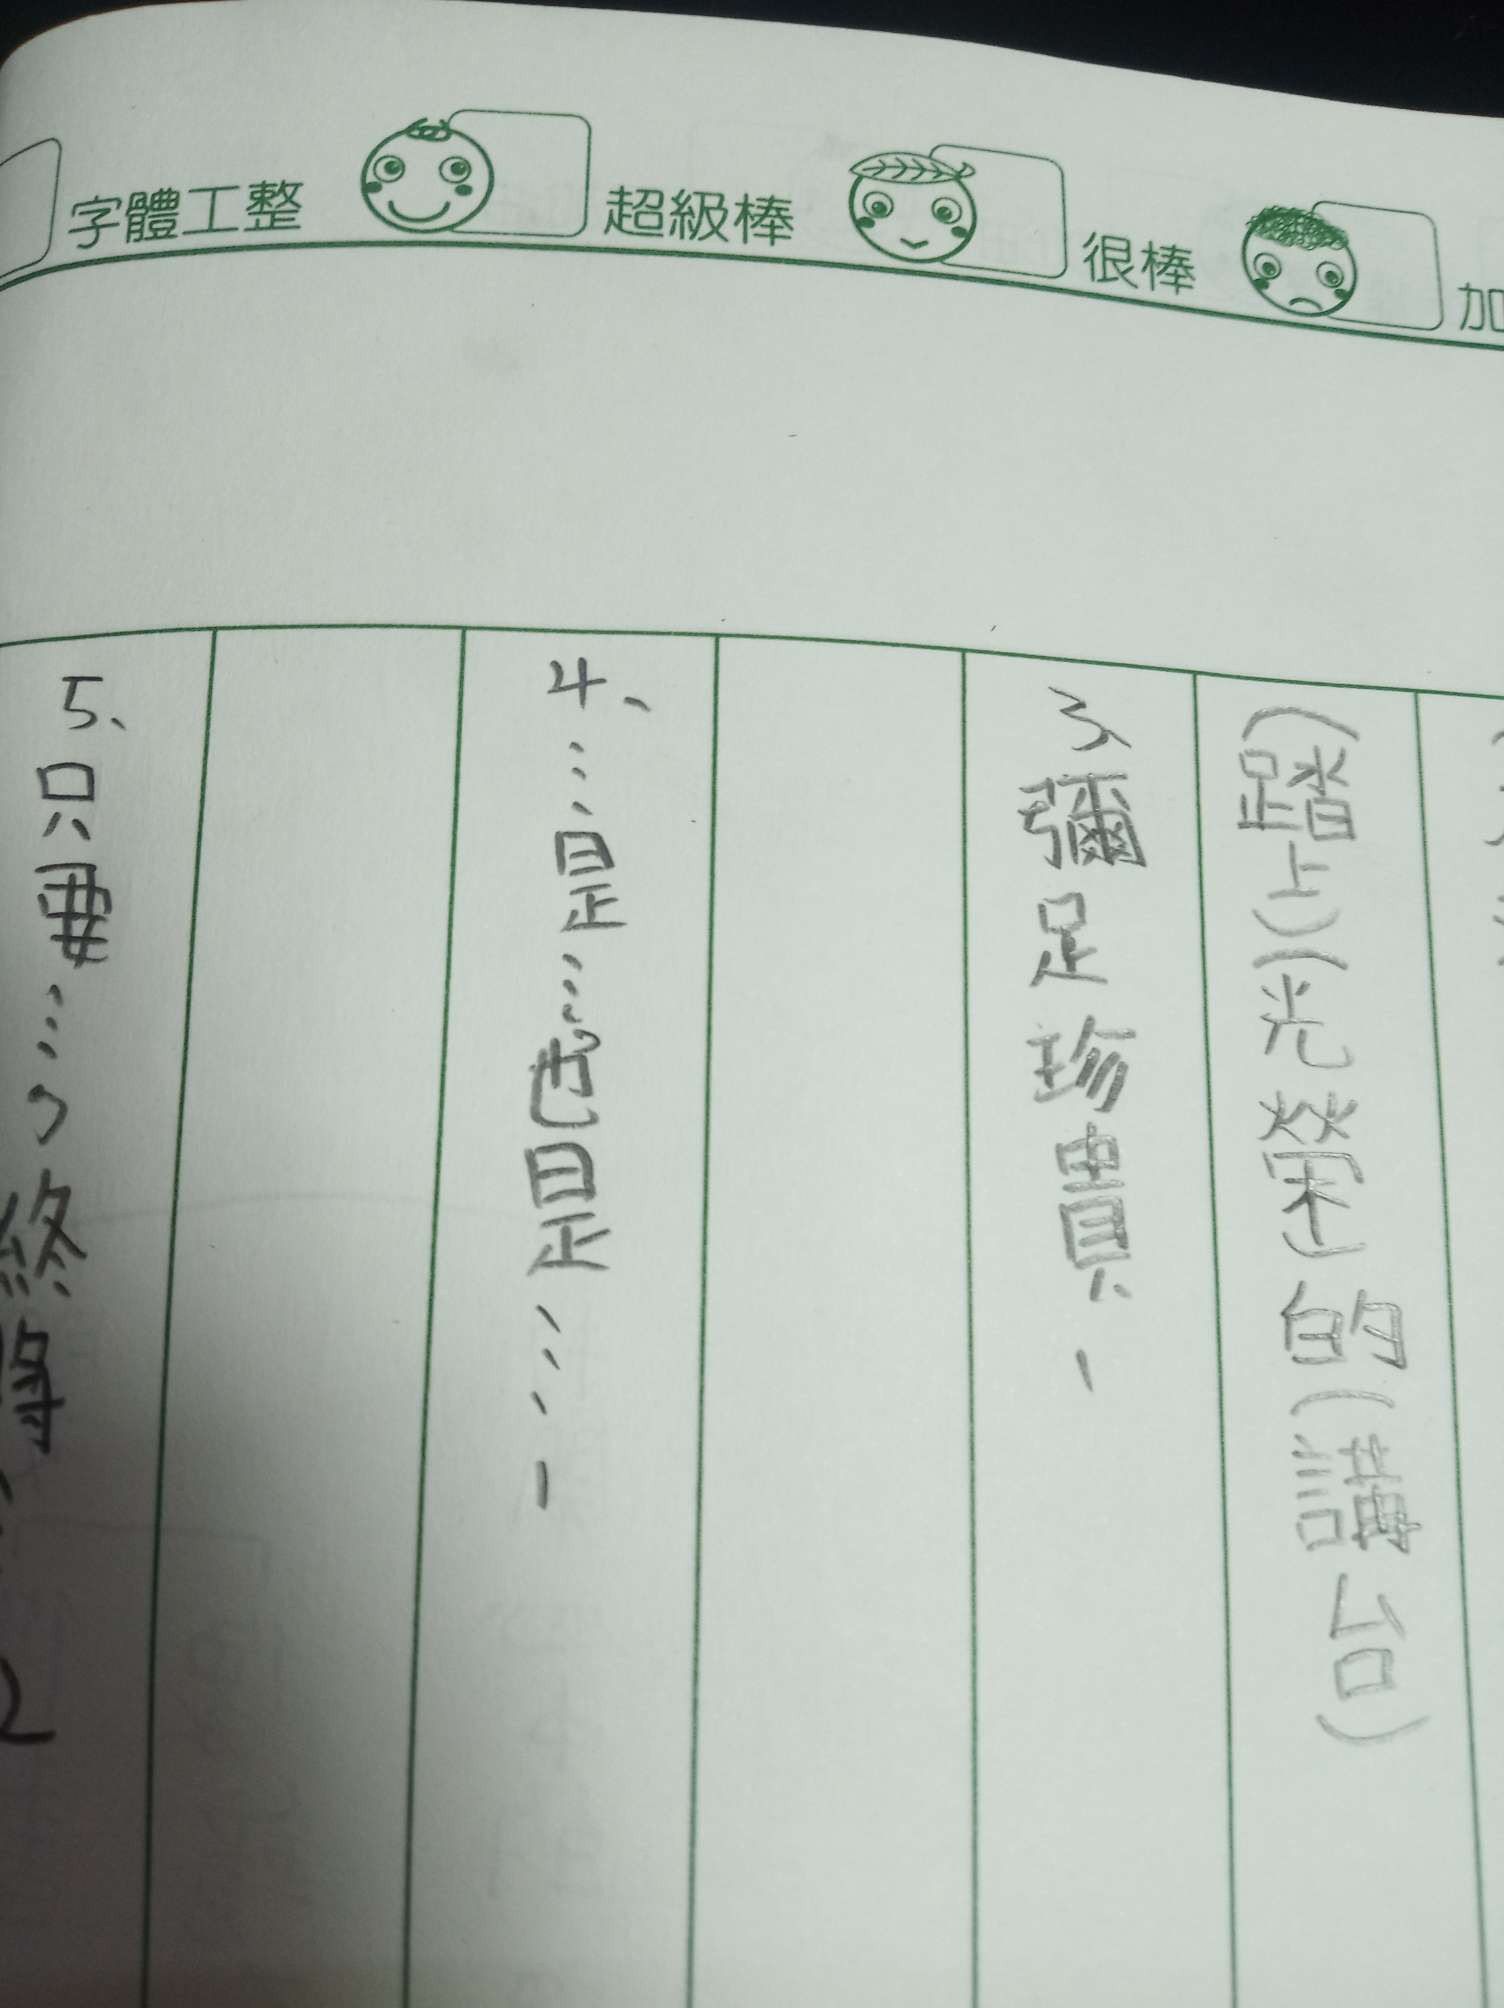 字體工整 超級棒 很棒 加
(踏上)(光榮)的(講台)
3、彌足珍貴：
4、……是……,也是……：
5、只要……,終將